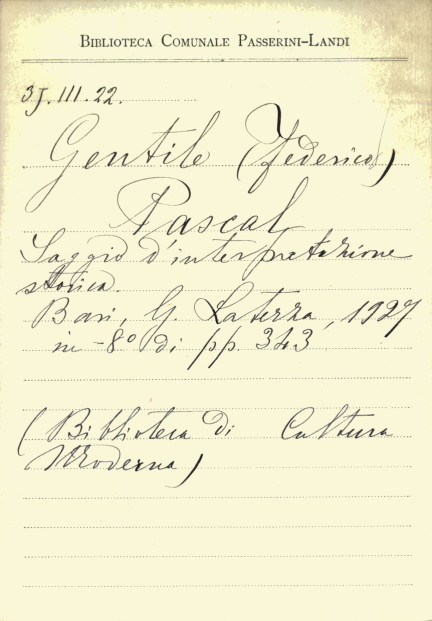 BIBLIOTECA COMUNALE PASSERINI-LANDI
3J.III.22.
Gentile (Federico)
Pascal
Saggio d'interpretazione
storica.
Bari, G. Laterza, 1927
in-8º di pp. 343
(Biblioteca di Cultura
Moderna)